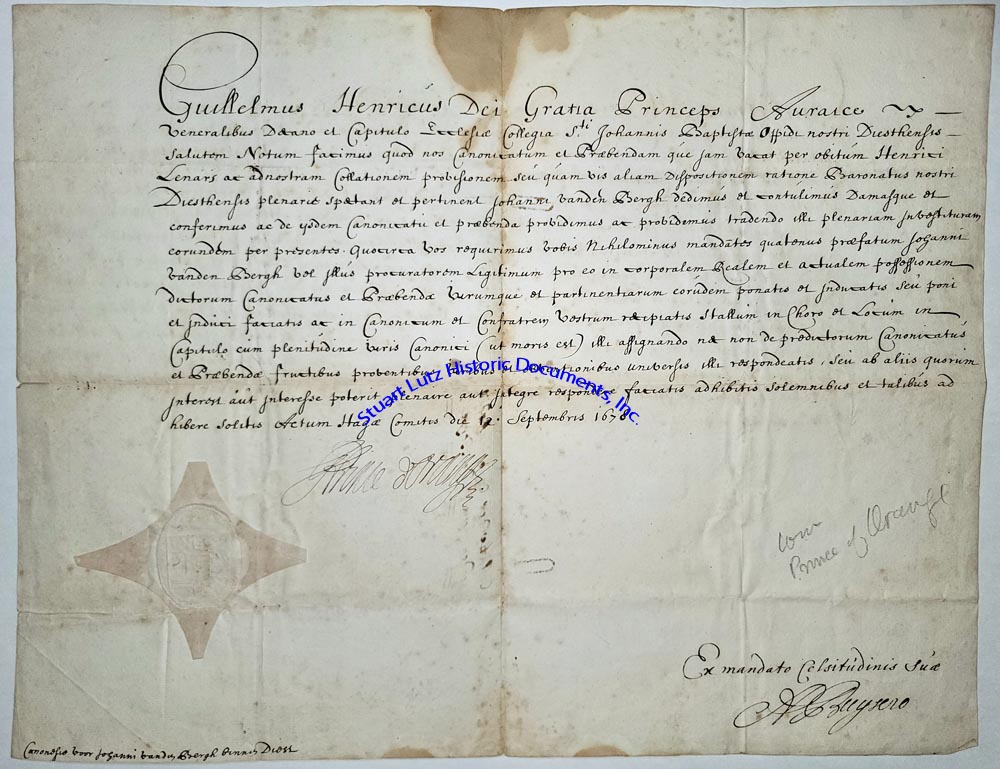 Guillelmus Henricus Dei Gratia Princeps Auraice
Veneralibus Decano et Capitulo Ecclesiæ Collegia Sti Johannis Baptistæ Oppidi nostri Diesthensis
Salutem Notum facimus quod nos Canonicatum et Præbendam que jam vacat per obitum Henrici
Lenars ac ad nostram Collationem provisionem seu quam vis aliam Dispositionem ratione Baronatus nostri
Diesthensis plenarie spectant et pertinent Johanni vanden Bergh dedimus et contulimus Damusque et
conferimus ac de ysdem Canonicatu et præbenda providimus ac providemus tradendo illi plenariam Investituram
eorundem per presentes. Quocirca vos requirimus vobis Nihilominus mandantes quatenus præfatum Johanni
vanden Bergh vel illius procuratorem Legitimum pro eo in corporalem Realem et actualem possessionem
dictorum Canonicatus et Præbendæ Iurumque et pertinentiarum eorundem ponatis et Inducatis seu poni
et Induci faciatis ac in Canonicum et Confratrem Vestrum recipiatis Stallum in Choro et Locum in
Capitulo cum plenitudine Iuris Canonici (ut moris est) illi assignando nec non de predictorum Canonicatus
et Præbendæ fructibus proventibus universis illi respondeatis, seu ab aliis quorum
Interest aut Interesse poterit plenarie aut Integre responderi faciatis adhibitis solemnibus et talibus ad
hibere solitis Actum Hagæ Comitis die 12. Septembris 1678
Stuart Lutz Historic Documents, Inc.
Prince d'Orange
Prince of Orange
Ex mandato Celsitudinis Suæ
Buysero
Canonesie voor Johanni vanden Bergh binnen Diest